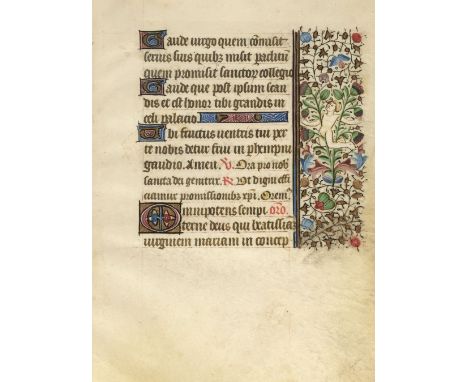 Gaude virgo quem co͞misit
servus suis quibz misit paditu͞
quem promisit sanctor͞ collegio
Gaude que post ipsum scan
dis et est honor tibi grandis in
celi palacio
Ubi fructus ventris tui per
te nobis detur frui in phenpni
gaudio. Amen. V. Ora pro nob͛
sancta dei genitrix. R. Ut digni effi
ciamur promissionibz xp͞i. Orem͛
Omnipotens sempi oro.
terne deus qui beatissia͞
virginem mariam in concep